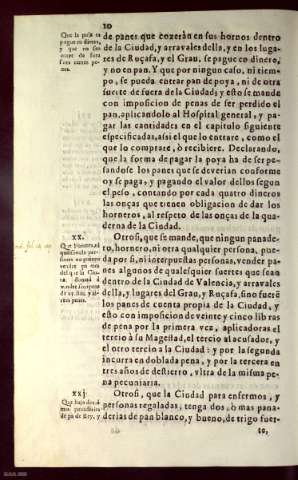 20
Que la poya se
pague en dinero,
y que no se
entre de fora
de panes que cozerân en sus hornos dentro
de la Ciudad, y arravales della, y en los luga-
res de Roçafa, y el Grau, se pague en dinero,
y no en pan. Y que por ningun caso, ni tiem-
po, se pueda entrar pan de poya, ni de otra
suerte de fuera de la Ciudad; y esto se mande
con imposicion de penas de ser perdido el
pan, aplicandolo al Hospital general, y pa-
gar las cantidades en el capitolo siguiente
especificadas, assi el que lo entrare, como el
que lo comprare, ò recibiere. Declarando,
que la forma de pagar la poya ha de ser pe-
sandose los panes que se deverian conforme
oy se paga, y pagando el valor dellos segun
el peso, contando por cada quatro dineros
las onças que tienen obligacion de dar los
horneros, al respeto de las onças de la qua-
derna de la Ciudad.
XX.
Otrosi, que se mande, que ningun panade-
ro, hornero, ni otra qualquier persona, pue-
da por si, ni interpuestas personas, vender pa-
nes algunos de qualesquier suertes que sean
dentro de la Ciudad de Valencia, y arravales
della, y lugares del Grau, y Ruçafa, sino fuerẽ
los panes de cuenta propia de la Ciudad, y
esto con imposicion de veinte y cinco libras
de pena por la primera vez, aplicadoras el
tercio à su Magestad, el tercio al acusador, y
el otro tercio a la Ciudad: y por la segunda
incurra en doblada pena, y por la tercera en
tres años de destierro, vltra de la misma pe-
na pecuniaria.
xxj.
Que baxo dicha
pena
de pã de Rey, y
Otrosi, que la Ciudad para enfermos, y
personas regaladas, tenga dos, ò mas pana-
derias de pan blanco, y bueno, de trigo fuer-
te,